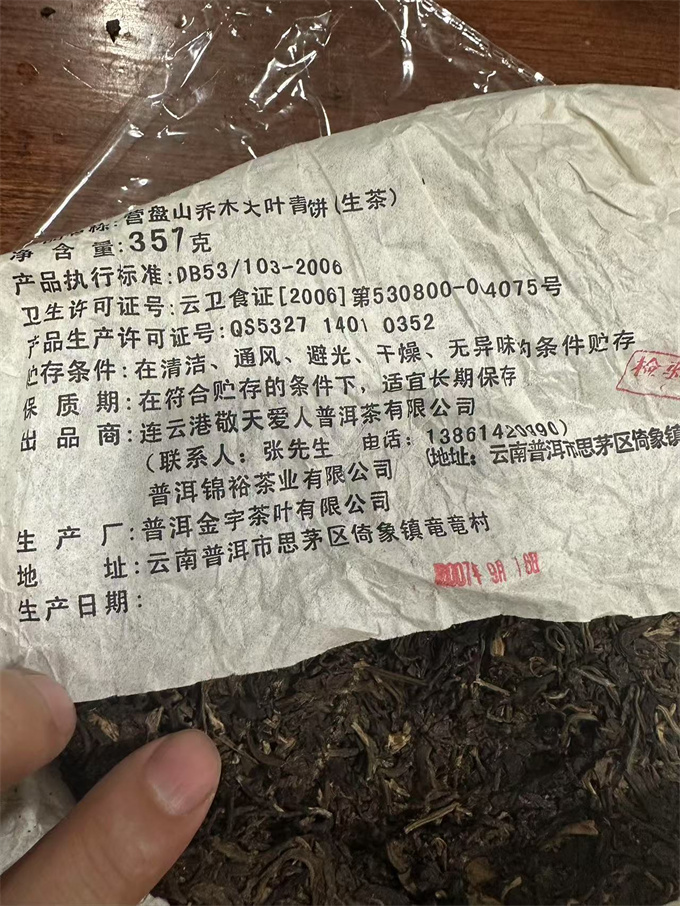 营盘山乔木大叶青饼(生茶)
净含量:357克
产品执行标准:DB53/103-2006
卫生许可证号:云卫食证[2006]第530800-04075号
产品生产许可证号:QS5327 1401 0352
贮存条件:在清洁、通风、避光、干燥、无异味的条件贮存
保质期:在符合贮存的条件下,适宜长期保存
出品商:连云港敬天爱人普洱茶有限公司
(联系人:张先生 电话:
普洱锦裕茶业有限公司 (地址:云南普洱市思茅区倚象镇
生产厂:普洱金宇茶叶有限公司
地址:云南普洱市思茅区倚象镇竜竜村
生产日期:
2007年9月18日
检